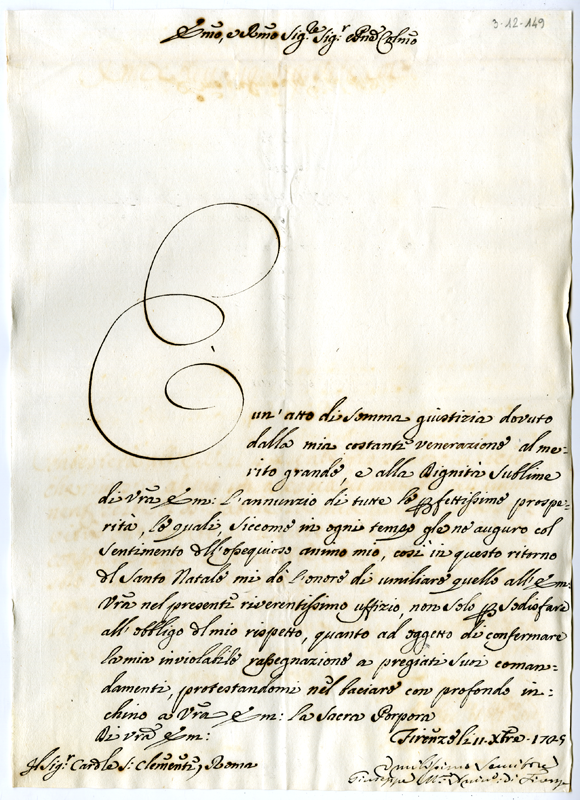 3-12-149
Emo, e Rmo Sig.re Sig.r Pne Colmo
È un' atto di somma giustizia dovuto
dalla mia costante venerazione al me-
rito grande, e alla Dignità sublime
di Vra Em: l'annunzio di tutte le pfettissime prospe-
rità, le quali, siccome in ogni tempo gle ne auguro col
sentimento dell'ossequioso animo mio, così in questo ritorno
del Santo Natale mi dò l'onore di umiliare quello all'Em:
Vra nel presente riverentissimo uffizio, non solo p sodisfare
all'obbligo del mio rispetto, quanto ad oggetto di confermare
la mia inviolabile rassegnazione a pregiati suoi coman-
damenti, protestandomi nel baciare con profondo in-
chino a Vra Em: la Sacra Porpora
Di Vra Em:
Firenze li 11. Xbre. 1705
Al Sig.r Cardle S: Clemente, Roma
Umilissimo Servitore
Giuseppe Ma